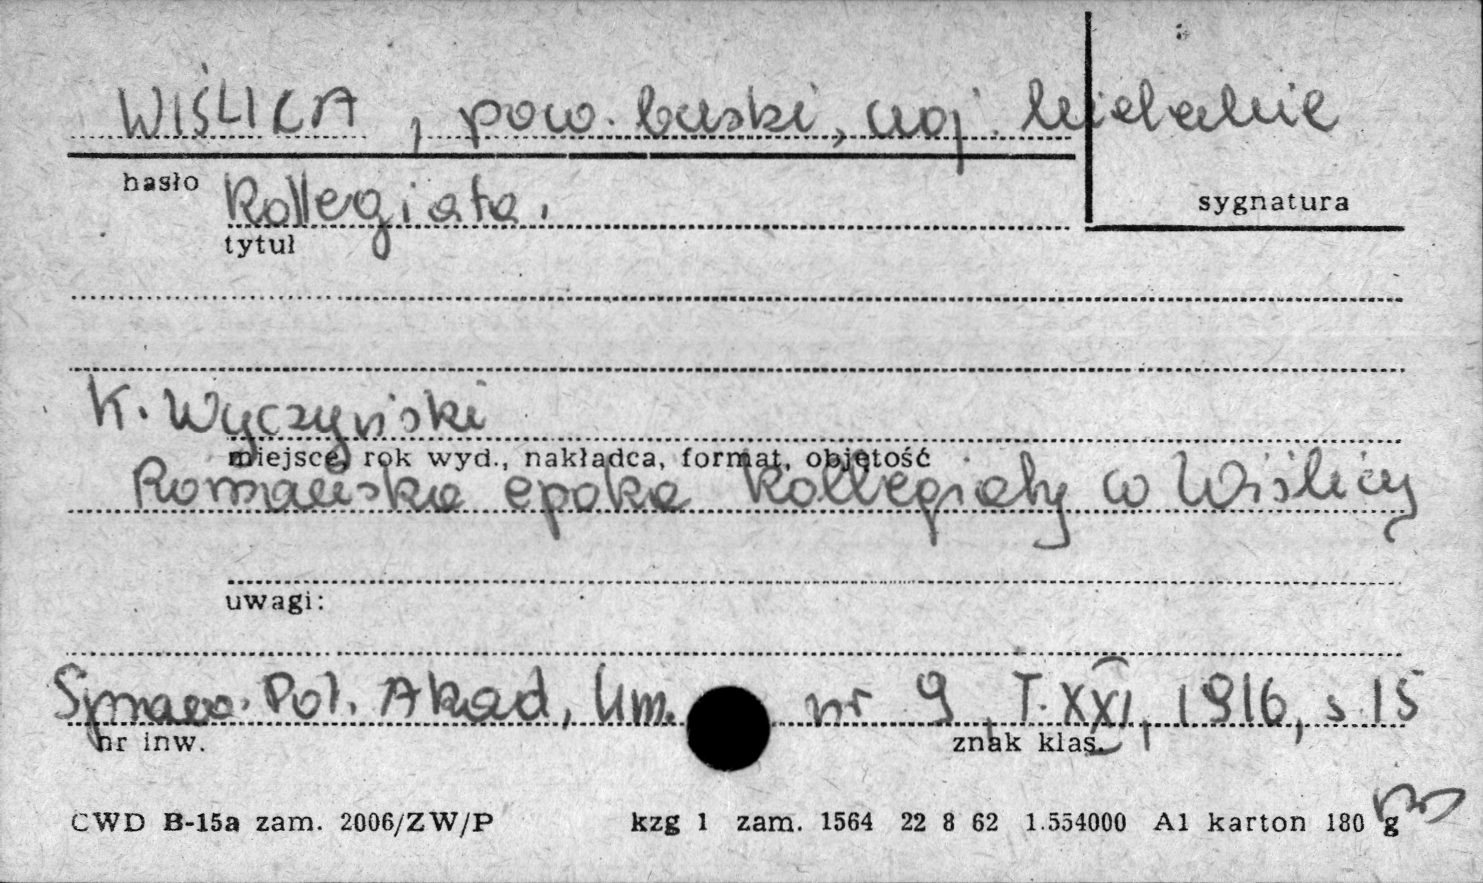 WIŚLICA, pow. buski, woj. kieleckie
hasło
sygnatura
Kollegiata.
tytuł
K. Wyczyński
miejsce, rok wyd., nakładca, format, objętość
Romańska epoka Kollegiaty w Wiślicy
uwagi:
Spraw. Pol. Akad, Um. nr 9, T. XXI, 1916, s 15
nr inw.
znak klas.
CWD B-15a zam. 2006/ZW/P kzg 1 zam. 1564 22 8 62 1.554000 A1 karton 180 g